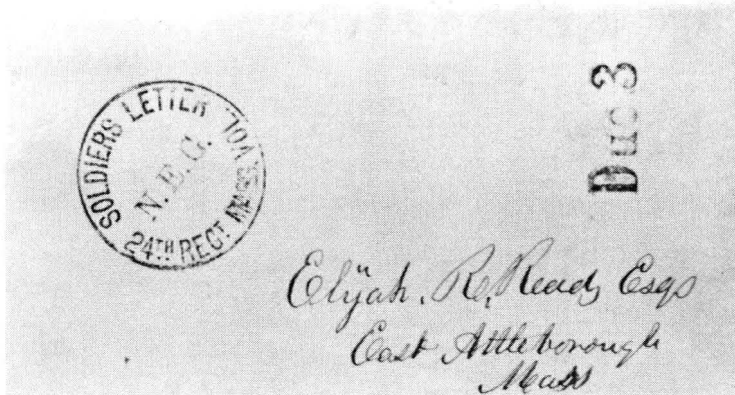 SOLDIERS LETTER
24TH REGT MASS VOL
N.E.G.
Due 3
Elijah. R. Ready Esqr
East Attleborough
Mass